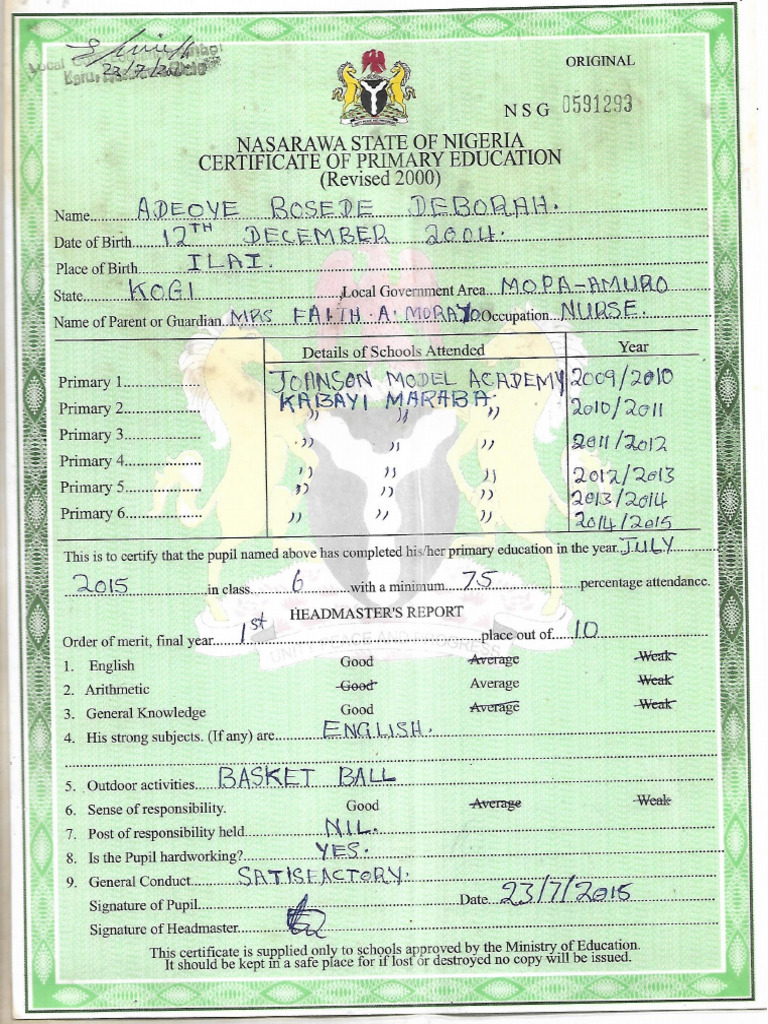 23/7/2015
ORIGINAL
NSG 0591293
NASARAWA STATE OF NIGERIA
CERTIFICATE OF PRIMARY EDUCATION
(Revised 2000)
Name ADEOYE BOSEDE DEBORAH.
Date of Birth 12TH DECEMBER 2004.
Place of Birth ILAI.
State KOGI Local Government Area MOPA-AMURO
Name of Parent or Guardian MRS FAITH A. MORAYO Occupation NURSE.
Details of Schools Attended Year
Primary 1 JOHNSON MODEL ACADEMY 2009/2010
Primary 2 KABAYI MARABA. 2010/2011
Primary 3 " " " 2011/2012
Primary 4 " " " 2012/2013
Primary 5 " " " 2013/2014
Primary 6 " " " 2014/2015
This is to certify that the pupil named above has completed his/her primary education in the year JULY
2015 in class 6 with a minimum 75 percentage attendance.
HEADMASTER'S REPORT
Order of merit, final year 1st place out of 10
1. English Good Average Weak
2. Arithmetic Good Average Weak
3. General Knowledge Good Average Weak
4. His strong subjects. (If any) are ENGLISH.
5. Outdoor activities BASKET BALL
6. Sense of responsibility. Good Average Weak
7. Post of responsibility held NIL.
8. Is the Pupil hardworking? YES.
9. General Conduct SATISFACTORY.
Signature of Pupil Date 23/7/2015
Signature of Headmaster
This certificate is supplied only to schools approved by the Ministry of Education.
It should be kept in a safe place for if lost or destroyed no copy will be issued.